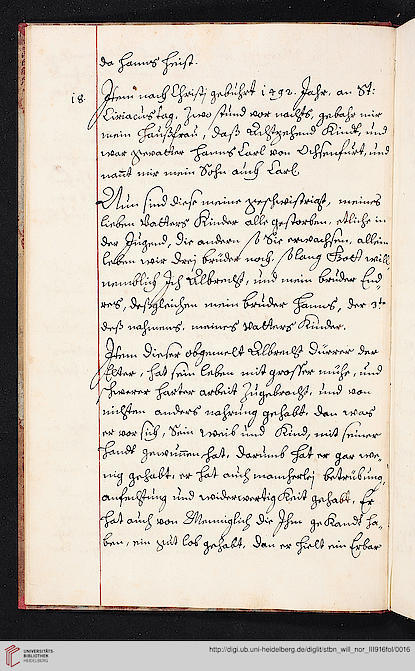 da Hanns heist.
18. Item nach Christj gebührt 1492. Jahr, an St:
Ciriacus tag, Zwo stund vor nachts, gebahr mir
mein Haußfrau, daß Achtzehend Kindt, und
war gevatter Hanns Carl von Ochsenfurt, und
nant mir mein Sohn auch Carl.
Nun sind diese meine geschwistrigt, meines
lieben Vatters Kinder alle gestorben, etliche in
der Jugend, die andern so Sie erwachsen, allein
leben wir drej brüder noch, so lang Gott will
nemblich Ich Albrecht, und mein bruder End-
res, deßgleichen mein bruder Hanns, der 3te
deß nahmens, meines Vatters Kinder.
Item dieser obgemelt Albrecht Dürrer der
Elter, hat sein leben mit grosser mühe, und
schwerer harter arbeit Zugebracht, und von
nichten anders nahrung gehabt, dan was
er vor sich, Sein weib und Kind, mit seiner
Handt gewunnen hat, darumb hat er gar we-
nig gehabt, er hat auch mancherlej betrübung,
anfechtung und widerwertigkeit gehabt, Er
hat auch von Menniglich die Ihn gekandt ha-
ben, ein gut lob gehabt, dan er hielt ein Erbar
UNIVERSITÄTS-
BIBLIOTHEK
HEIDELBERG
http://digi.ub.uni-heidelberg.de/diglit/stbn_will_nor_III916fol/0016